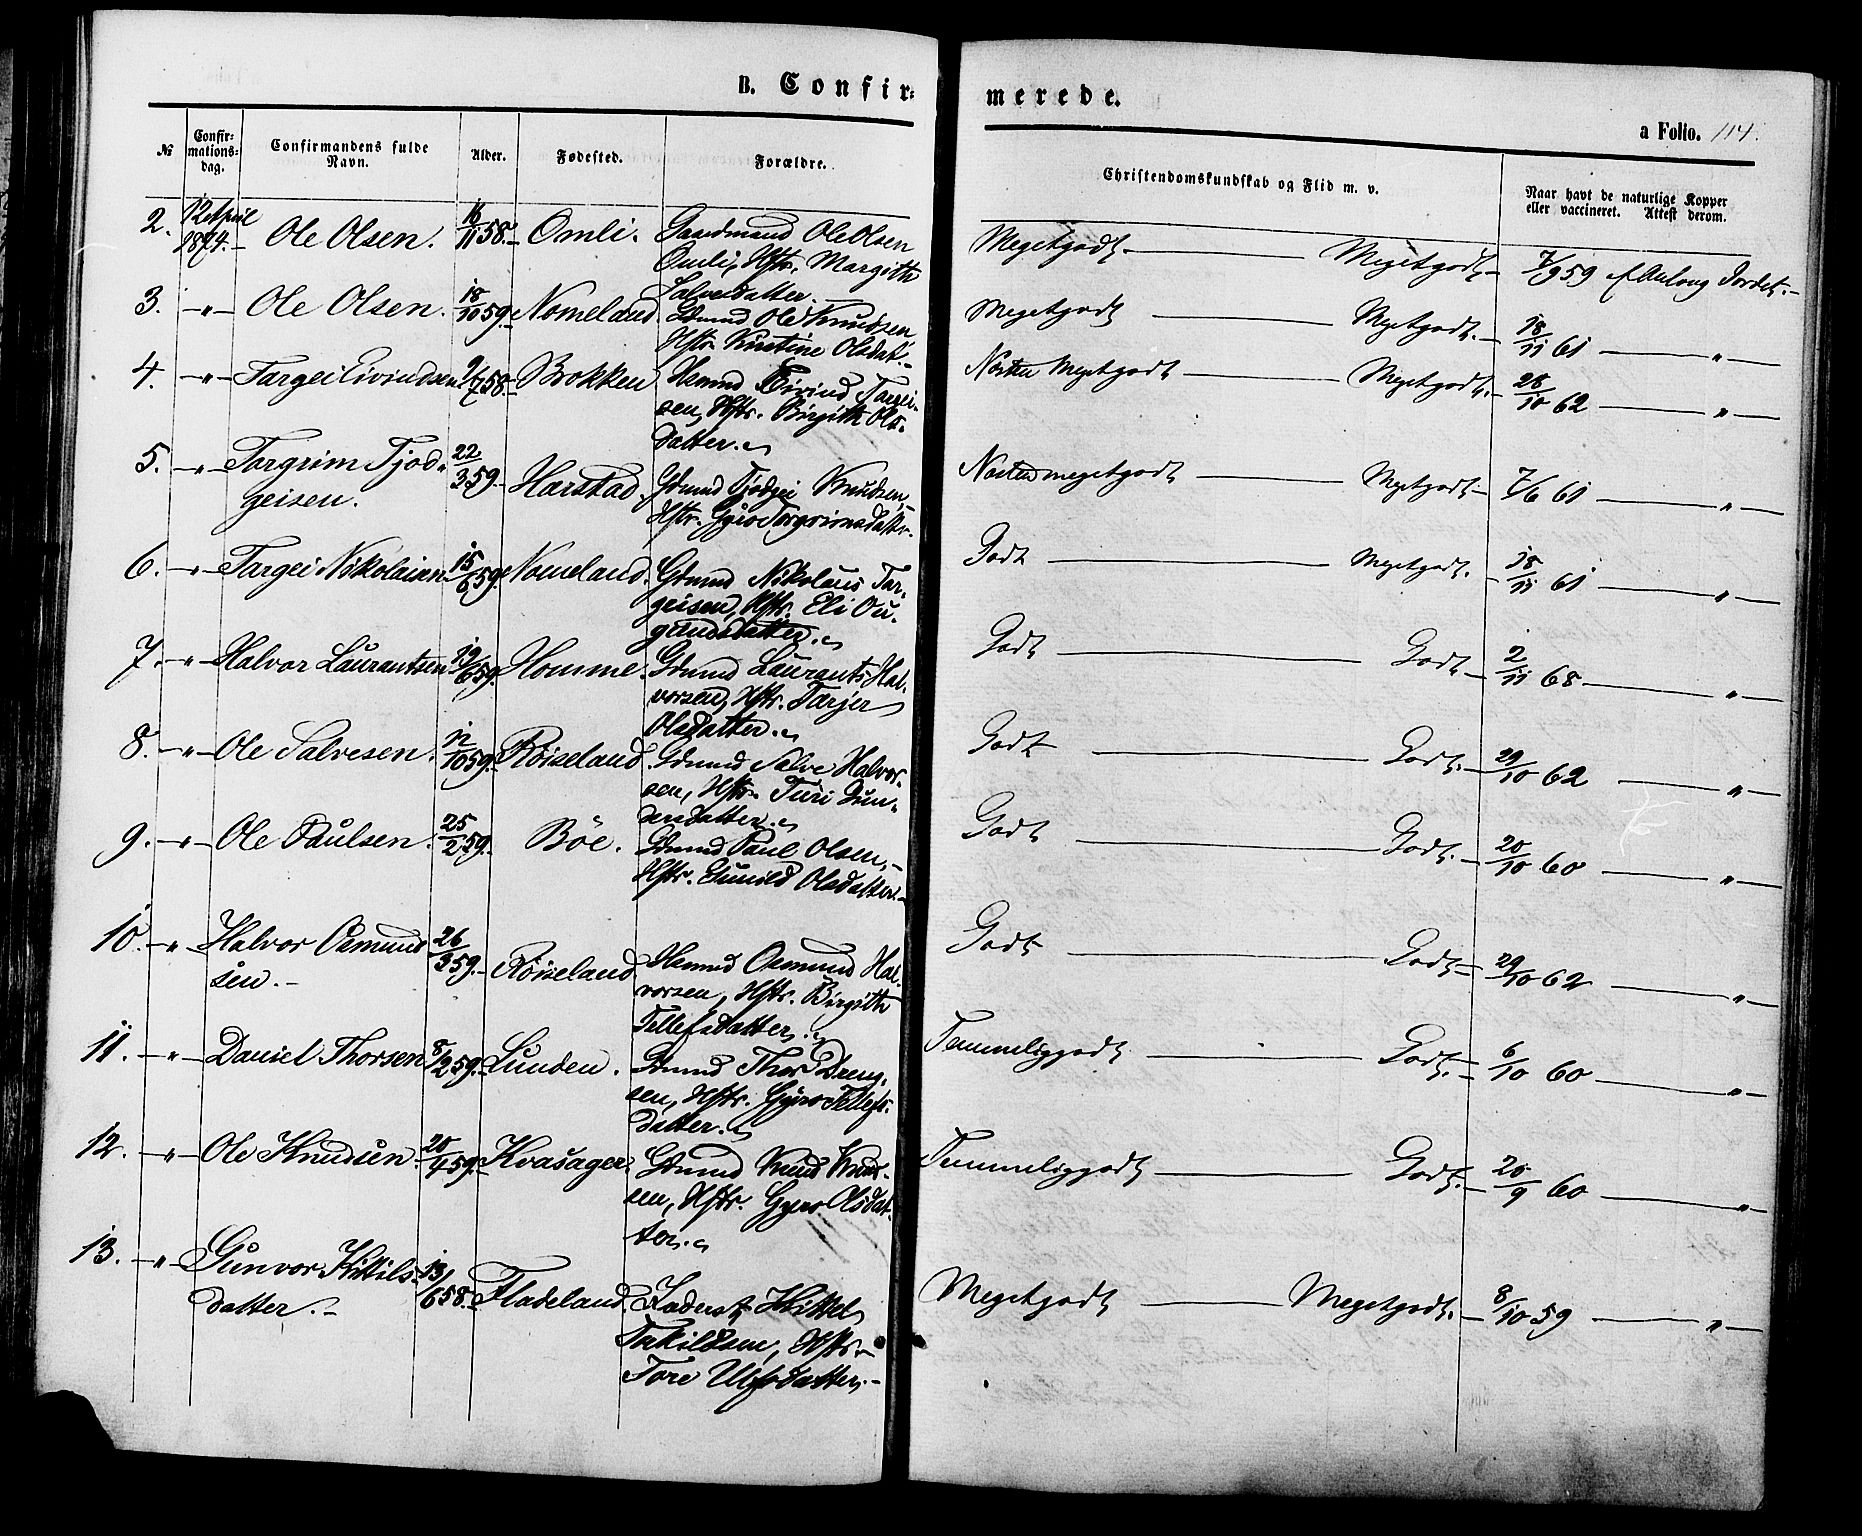 B. Confir=
merede.
a Folio. 114.
№ Confir=mations=dag. Confirmandens fulde Navn. Alder. Fødested. Forældre. Christendomskundskab og Flid m. v. Naar havt de naturlige Kopper eller vaccineret. Attest derom.
2. 12 April 1874.- Ole Olsen. 16/11 58.- Omli. Gaardmand Ole Olsen
Omli, Hstr. Margith
Salvesdatter. Megetgodt. Megetgodt.- 7/9 59
3. -"- Ole Olsen. 18/10 59. Nomeland. Gdmnd Ole Knudsen,
Hstr. Kirstine Olsdat.- Megetgodt Megetgodt.- 18/11 61 "
4. -"- Targei Eivindsen 9/7 58.- Brokken Hemnd Eivind Targei-
sen, Hstr. Birgith Ols-
datter. Næsten Megetgodt Megetgodt. 28/10 62 "
5. -"- Torgrim Tjod-
geisen. 22/3 59.- Harstad. Gdmnd Tjodgei Knudsen,
Hstr. Gyro Torgrimsdattr. Næsten megetgodt Megetgodt.- 7/6 61 "
6. -"- Targei Nikolaisen 15/6 59. Nomeland. Gdmnd Nikolaus Tar-
geisen, Hstr. Eli Ou-
gundsdatter. Godt Megetgodt. 18/11 61 "
7. -"- Halvor Laurantsen 19/6 59. Homme. Gdmnd Laurants Hal-
vorsen, Hstr. Tarjer
Olsdatter. Godt Godt.- 2/11 68 "
8. -"- Ole Salvesen. 12/10 59. Röiseland. Gdmnd Salve Halvor-
sen, Hstr. Turi Gun-
dersdatter. Godt Godt. 29/10 62 "
9. -"- Ole Paulsen. 25/2 59. Böe. Gdmnd Paul Olsen,-
Hstr. Gunild Olsdatter.- Godt Godt. 20/10 60 "
10. -"- Halvor Osmund
sen.- 26/3 59.- Röiseland. Hemnd Osmund Hal-
vorsen, Hstr. Birgith
Tellefsdatter. Godt Godt.- 29/10 62 "
11. -"- Daniel Thorsen 8/2 59.- Lunden. Gdmnd Thor Dreng-
sen, Hstr. Gyro Tellefs-
datter. Temmeliggodt Godt.- 6/10 60 "
12. -"- Ole Knudsen. 20/4 59.- Kvasager. Gdmnd Knud Knud-
sen, Hstr. Gyro Olsdat-
ter. Temmeliggodt Godt. 20/9 60 "
13. -"- Gunvor Kittils-
datter.- 13/6 58. Fladeland. Kittel
Hstr.
Tore Ulfsdatter.- Megetgodt Megetgodt. 8/10 59 "